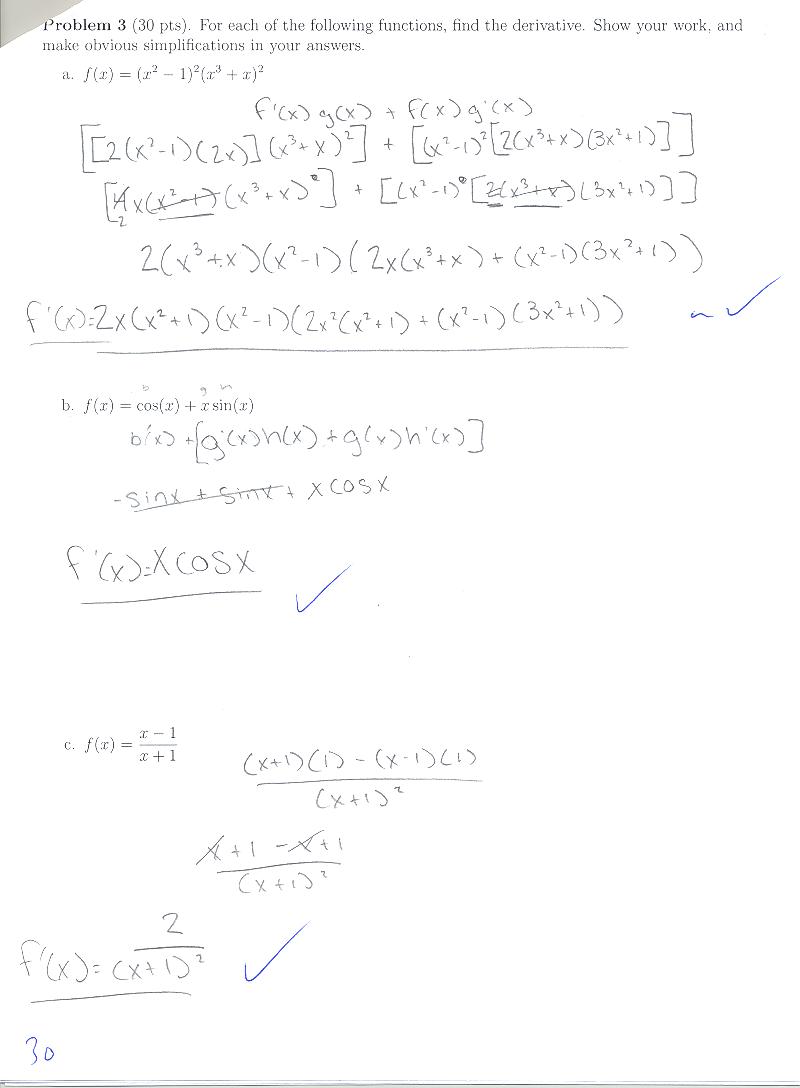 Problem 3 (30 pts). For each of the following functions, find the derivative. Show your work, and
make obvious simplifications in your answers.
a. f(x) = (x² − 1)²(x³ + x)²
f'(x) g(x) + f(x) g'(x)
[[2(x²-1)(2x)](x³+x)²] + [(x²-1)²[2(x³+x)(3x²+1)]]
[4x(x²-1)(x³+x)²] + [(x²-1)²[2(x³+x)(3x²+1)]]
2
2(x³+x)(x²-1)(2x(x³+x)+(x²-1)(3x²+1))
f'(x)=2x(x²+1)(x²-1)(2x²(x²+1)+(x²-1)(3x²+1)) ~ ✓
b g h
b. f(x) = cos(x) + x sin(x)
b'(x) + [g'(x)h(x) + g(x)h'(x)]
-sinx + sinx + xcosx
f'(x)=xcosx
✓
c. f(x) = (x − 1)/(x + 1)
(x+1)(1) - (x-1)(1)
(x+1)²
x+1 -x+1
(x+1)²
2
f'(x)= (x+1)² ✓
30